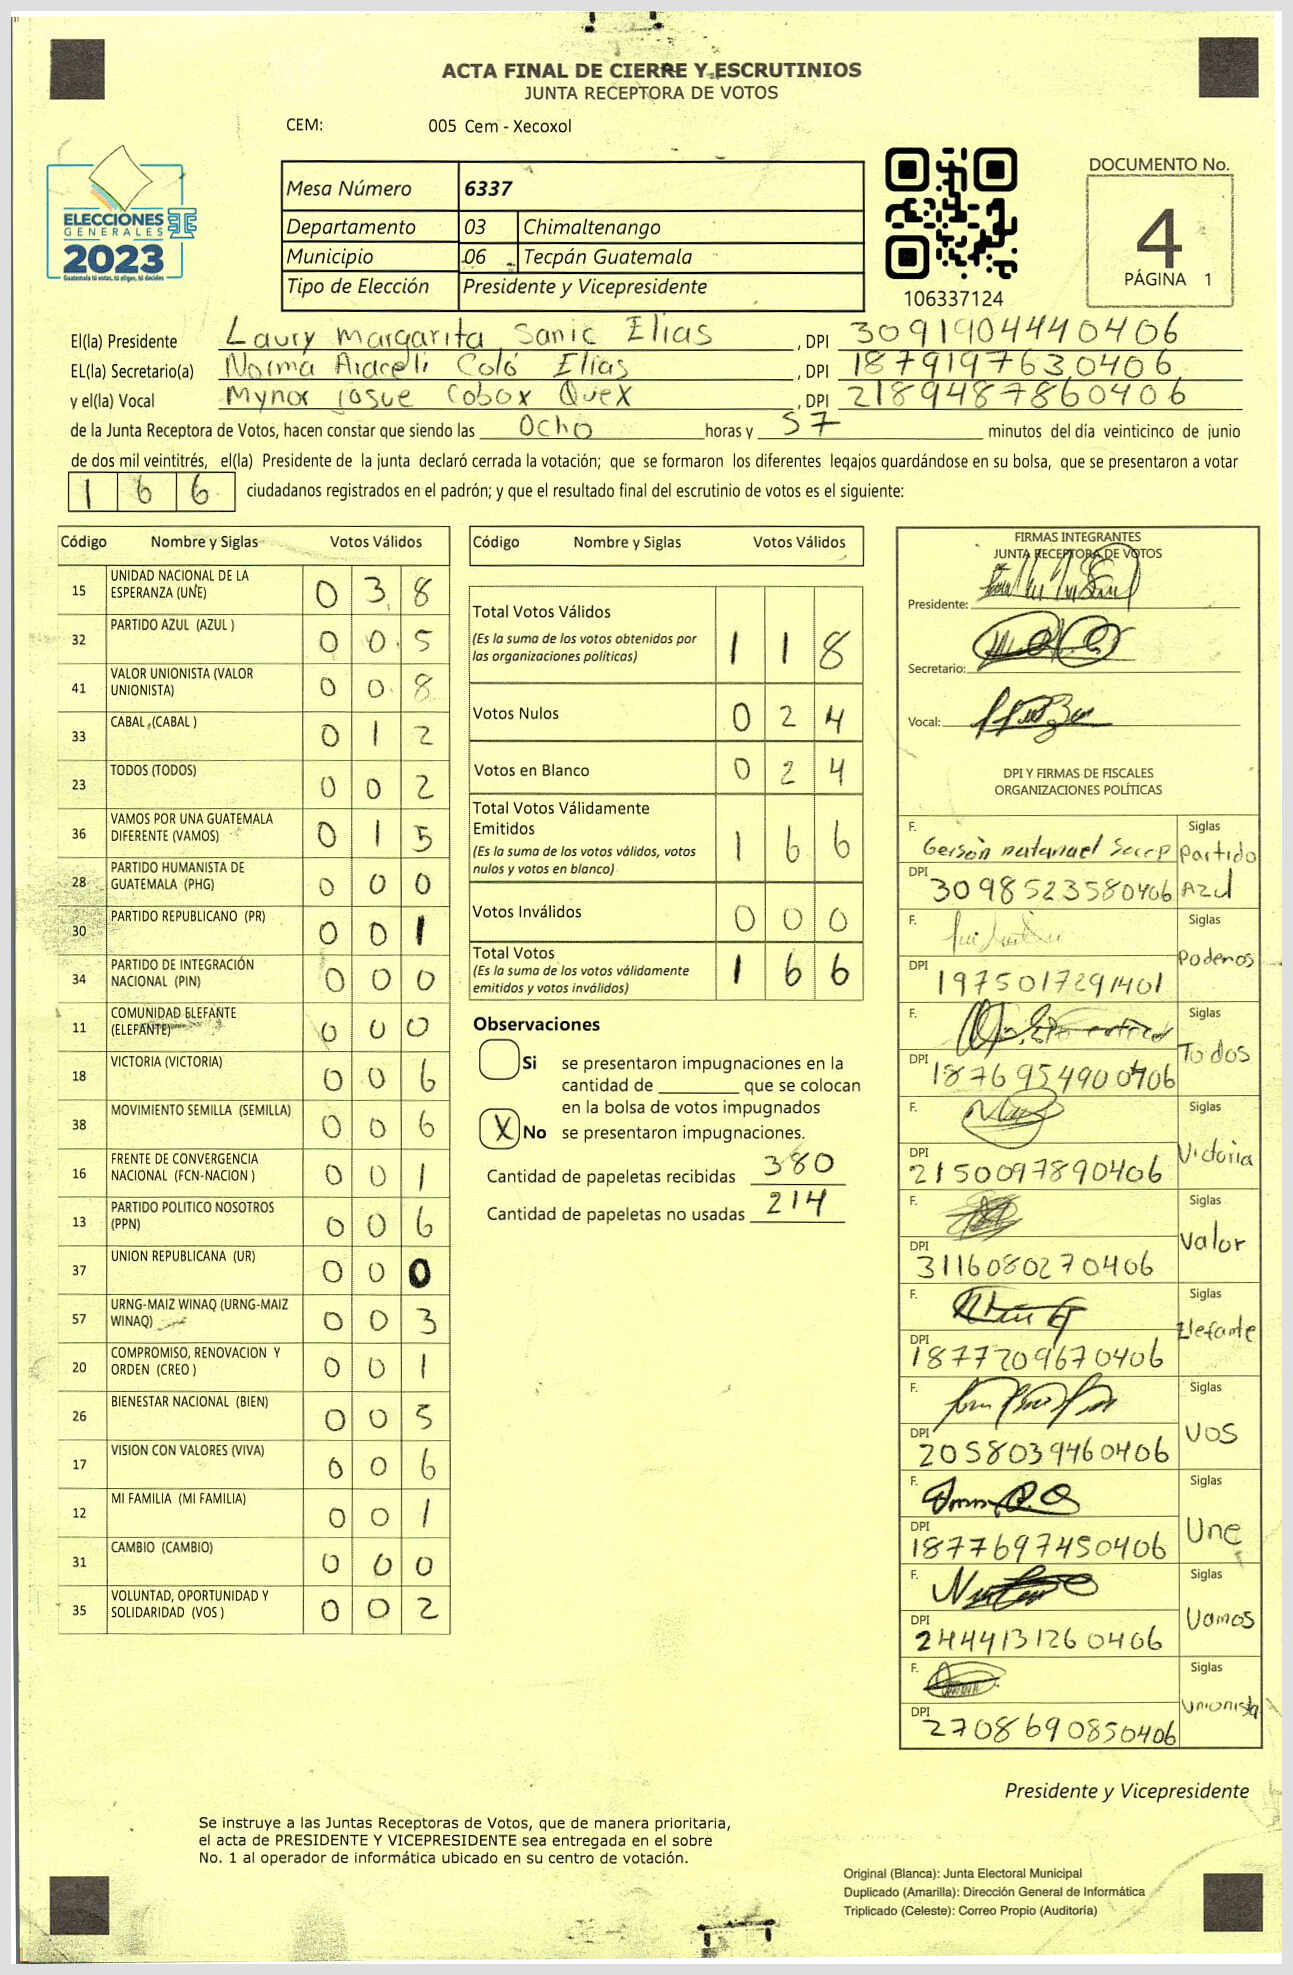 ACTA FINAL DE CIERRE Y ESCRUTINIOS
JUNTA RECEPTORA DE VOTOS
CEM: 005 Cem - Xecoxol
ELECCIONES
GENERALES
2023
Guatemala tú votas, tú eliges, tú decides
Mesa Número 6337
Departamento 03 Chimaltenango
Municipio 06 Tecpán Guatemala
Tipo de Elección Presidente y Vicepresidente
106337124
DOCUMENTO No.
4
PÁGINA 1
El(la) Presidente Laury Margarita Sanic Elias, DPI 3091904440406
EL(la) Secretario(a) Norma Araceli Coló Elias, DPI 1879197630406
y el(la) Vocal Mynor josue Cobox Quex, DPI 2189487860406
de la Junta Receptora de Votos, hacen constar que siendo las Ocho horas y 57 minutos del día veinticinco de junio
de dos mil veintitrés, el(la) Presidente de la junta declaró cerrada la votación; que se formaron los diferentes legajos guardándose en su bolsa, que se presentaron a votar
166 ciudadanos registrados en el padrón; y que el resultado final del escrutinio de votos es el siguiente:
Código Nombre y Siglas Votos Válidos
15 UNIDAD NACIONAL DE LA ESPERANZA (UNE) 038
32 PARTIDO AZUL (AZUL ) 005
41 VALOR UNIONISTA (VALOR UNIONISTA) 008
33 CABAL (CABAL ) 012
23 TODOS (TODOS) 002
36 VAMOS POR UNA GUATEMALA DIFERENTE (VAMOS) 015
28 PARTIDO HUMANISTA DE GUATEMALA (PHG) 000
30 PARTIDO REPUBLICANO (PR) 001
34 PARTIDO DE INTEGRACIÓN NACIONAL (PIN) 000
11 COMUNIDAD ELEFANTE (ELEFANTE) 000
18 VICTORIA (VICTORIA) 006
38 MOVIMIENTO SEMILLA (SEMILLA) 006
16 FRENTE DE CONVERGENCIA NACIONAL (FCN-NACION ) 001
13 PARTIDO POLITICO NOSOTROS (PPN) 006
37 UNION REPUBLICANA (UR) 000
57 URNG-MAIZ WINAQ (URNG-MAIZ WINAQ) 003
20 COMPROMISO, RENOVACION Y ORDEN (CREO ) 001
26 BIENESTAR NACIONAL (BIEN) 005
17 VISION CON VALORES (VIVA) 006
12 MI FAMILIA (MI FAMILIA) 001
31 CAMBIO (CAMBIO) 000
35 VOLUNTAD, OPORTUNIDAD Y SOLIDARIDAD (VOS ) 002
Código Nombre y Siglas Votos Válidos
Total Votos Válidos 118
(Es la suma de los votos obtenidos por
las organizaciones políticas)
Votos Nulos 024
Votos en Blanco 024
Total Votos Válidamente
Emitidos 166
(Es la suma de los votos válidos, votos
nulos y votos en blanco)
Votos Inválidos 000
Total Votos 166
(Es la suma de los votos válidamente
emitidos y votos inválidos)
Observaciones
Si se presentaron impugnaciones en la
cantidad de ________ que se colocan
en la bolsa de votos impugnados
X No se presentaron impugnaciones.
Cantidad de papeletas recibidas 380
Cantidad de papeletas no usadas 214
FIRMAS INTEGRANTES
JUNTA RECEPTORA DE VOTOS
Presidente:
Secretario:
Vocal:
DPI Y FIRMAS DE FISCALES
ORGANIZACIONES POLÍTICAS
F. Gerson natanael Siglas Partido Azul
DPI 3098523580406
F. Siglas Podemos
DPI 1975017291401
F. Siglas Todos
DPI 1876954900406
F. Siglas Victoria
DPI 2150097890406
F. Siglas Valor
DPI 3116080270406
F. Siglas Elefante
DPI 1877209670406
F. Siglas VOS
DPI 2058039460406
F. Siglas Une
DPI 1877697450406
F. Siglas Vamos
DPI 2444131260406
F. Siglas Unionista
DPI 2708690850406
Presidente y Vicepresidente
Se instruye a las Juntas Receptoras de Votos, que de manera prioritaria,
el acta de PRESIDENTE Y VICEPRESIDENTE sea entregada en el sobre
No. 1 al operador de informática ubicado en su centro de votación.
Original (Blanca): Junta Electoral Municipal
Duplicado (Amarilla): Dirección General de Informática
Triplicado (Celeste): Correo Propio (Auditoría)